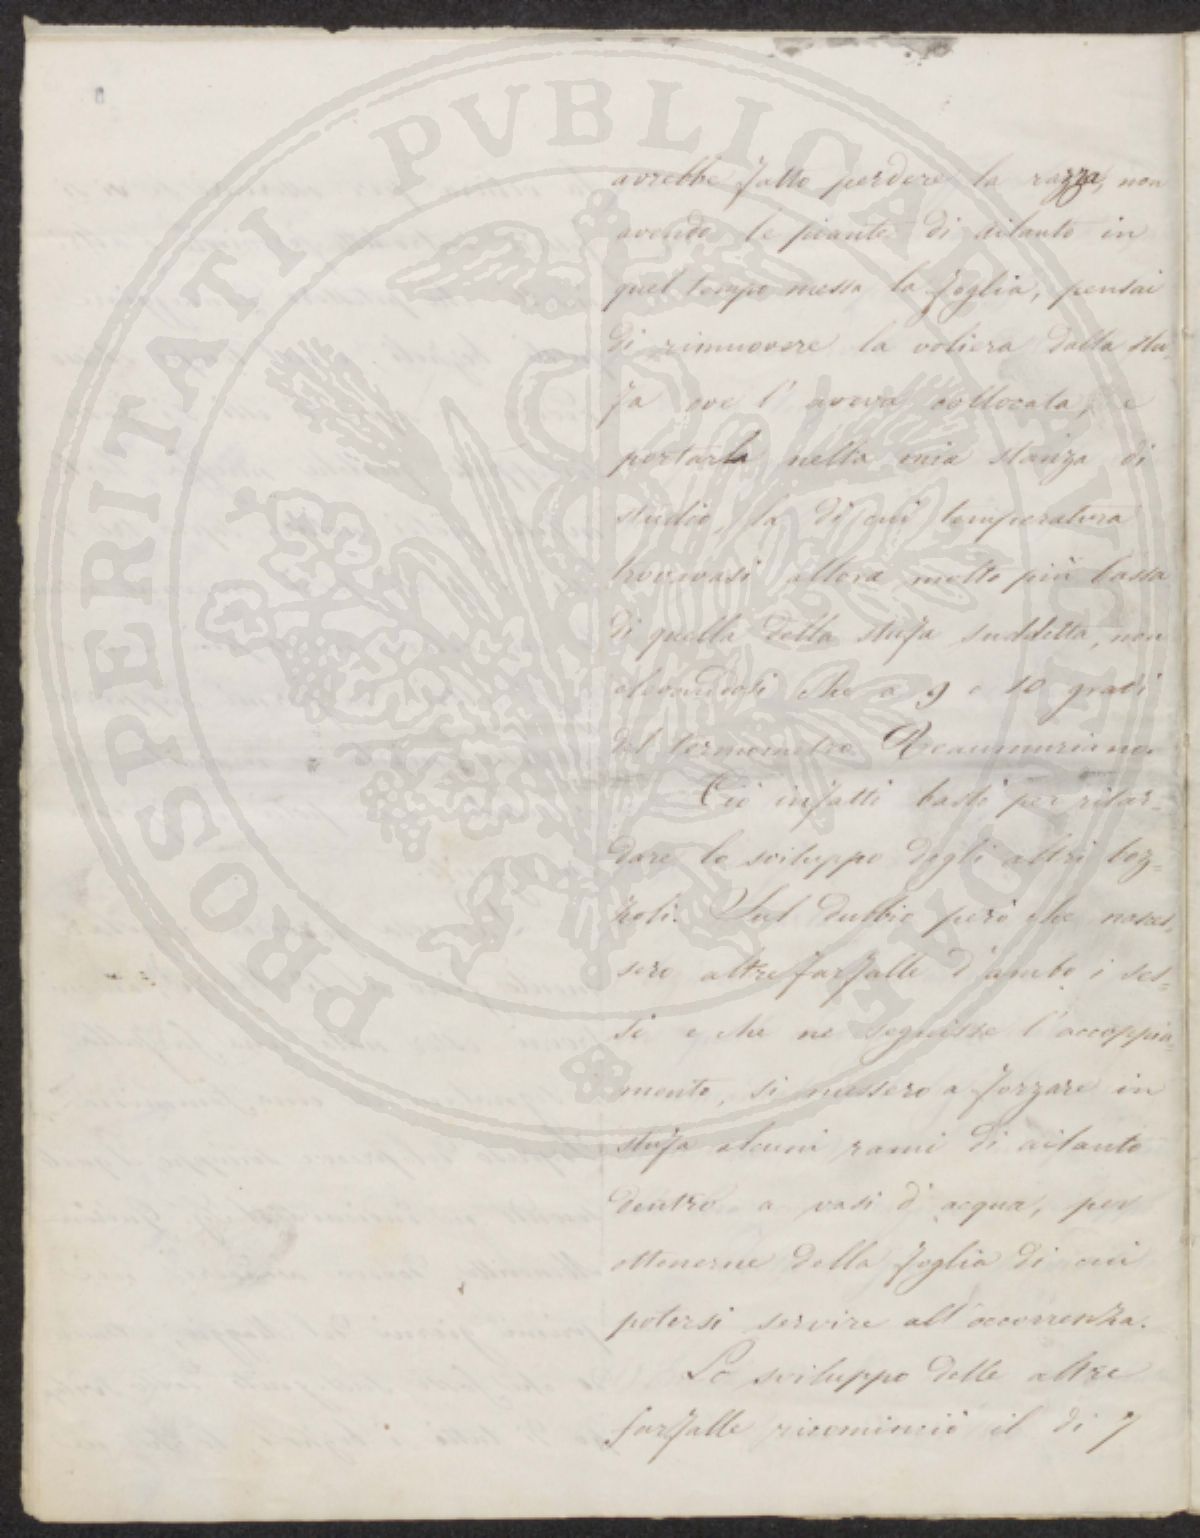 avrebbe fatto perdere la razza, non
avendo le piante di ailanto in
quel tempo messa la foglia, pensai
di rimuovere la voliera dalla stu-
fa ove l'aveva collocata, e
portarla nella mia stanza di
studio, la di cui temperatura
trovavasi allora molto più bassa
di quella della stufa suddetta, non
elevandosi che a 9 o 10 gradi
del termometro Reaumuriano.
Ciò infatti bastò per ritar-
dare lo sviluppo degli altri boz-
zoli. Sul dubbio però che nasces-
sero altre farfalle d'ambo i ses-
si e che ne seguisse l'accoppia-
mento, si messero a forzare in
stufa alcuni rami di ailanto
dentro a vasi d'acqua, per
ottenerne della foglia di cui
potersi servire all'occorrenza.
Lo sviluppo delle altre
farfalle ricominciò il dì 7
PROSPERITATI PVBLICAE